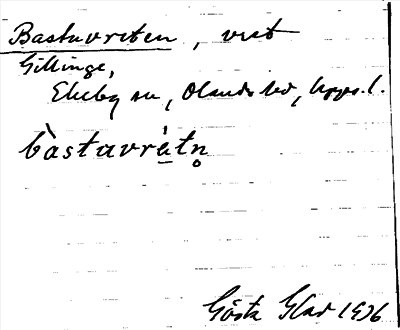 Bastuvreten, vret
Gillinge,
Ekeby sn, Olands hd, Upps. l.
bàstuvrètn̥
Gösta Glad 1936